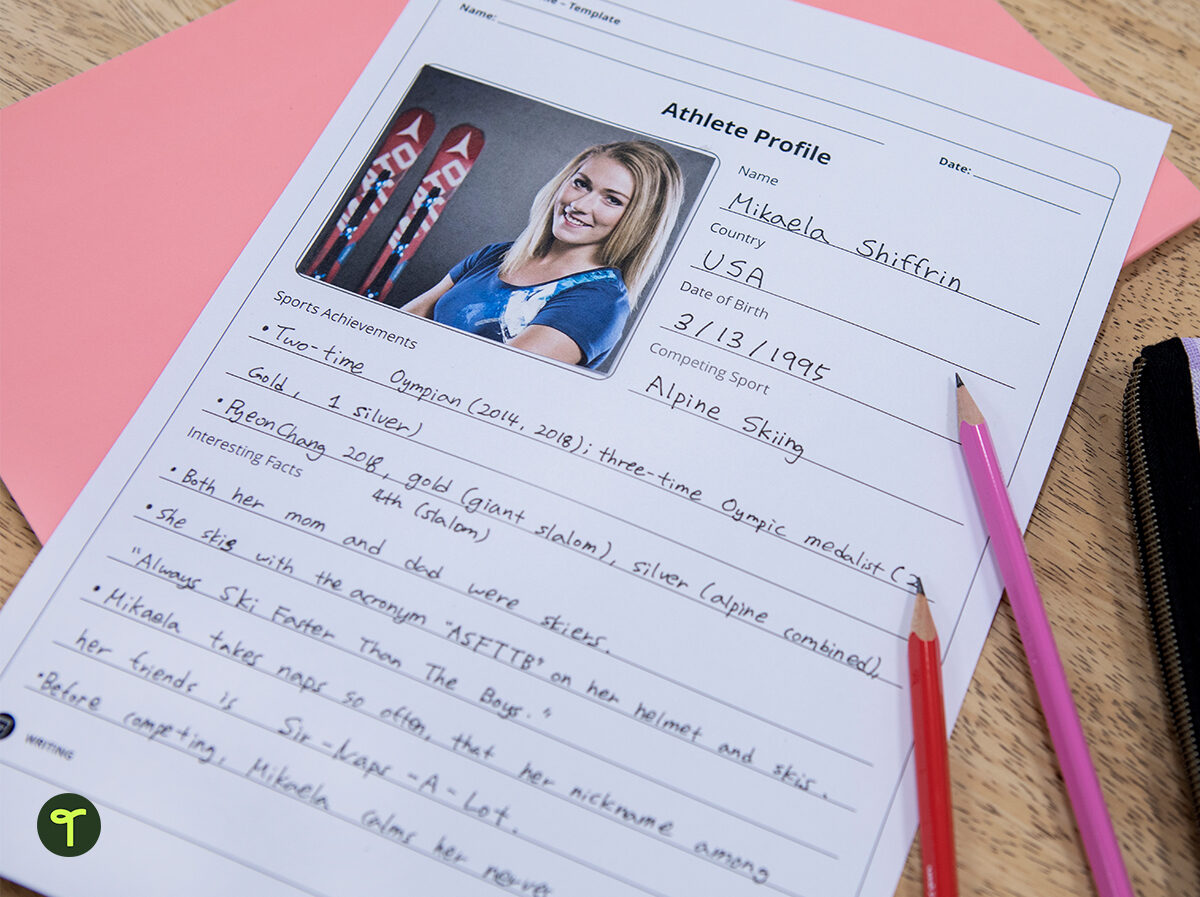 – Template
Name:
Athlete Profile
Date:
Name
Mikaela Shiffrin
Country
USA
Date of Birth
3/13/1995
Competing Sport
Alpine Skiing
Sports Achievements
• Two-time Olympian (2014, 2018); three-time Olympic medalist (2
Gold, 1 silver)
• PyeonChang 2018, gold (giant slalom), silver (alpine combined),
4th (slalom)
Interesting Facts
• Both her mom and dad were skiers.
• She skis with the acronym "ASFTTB" on her helmet and skis.
"Always Ski Faster Than The Boys."
• Mikaela takes naps so often, that her nickname among
her friends is Sir-Naps-A-Lot.
• Before competing, Mikaela calms her nerve
WRITING